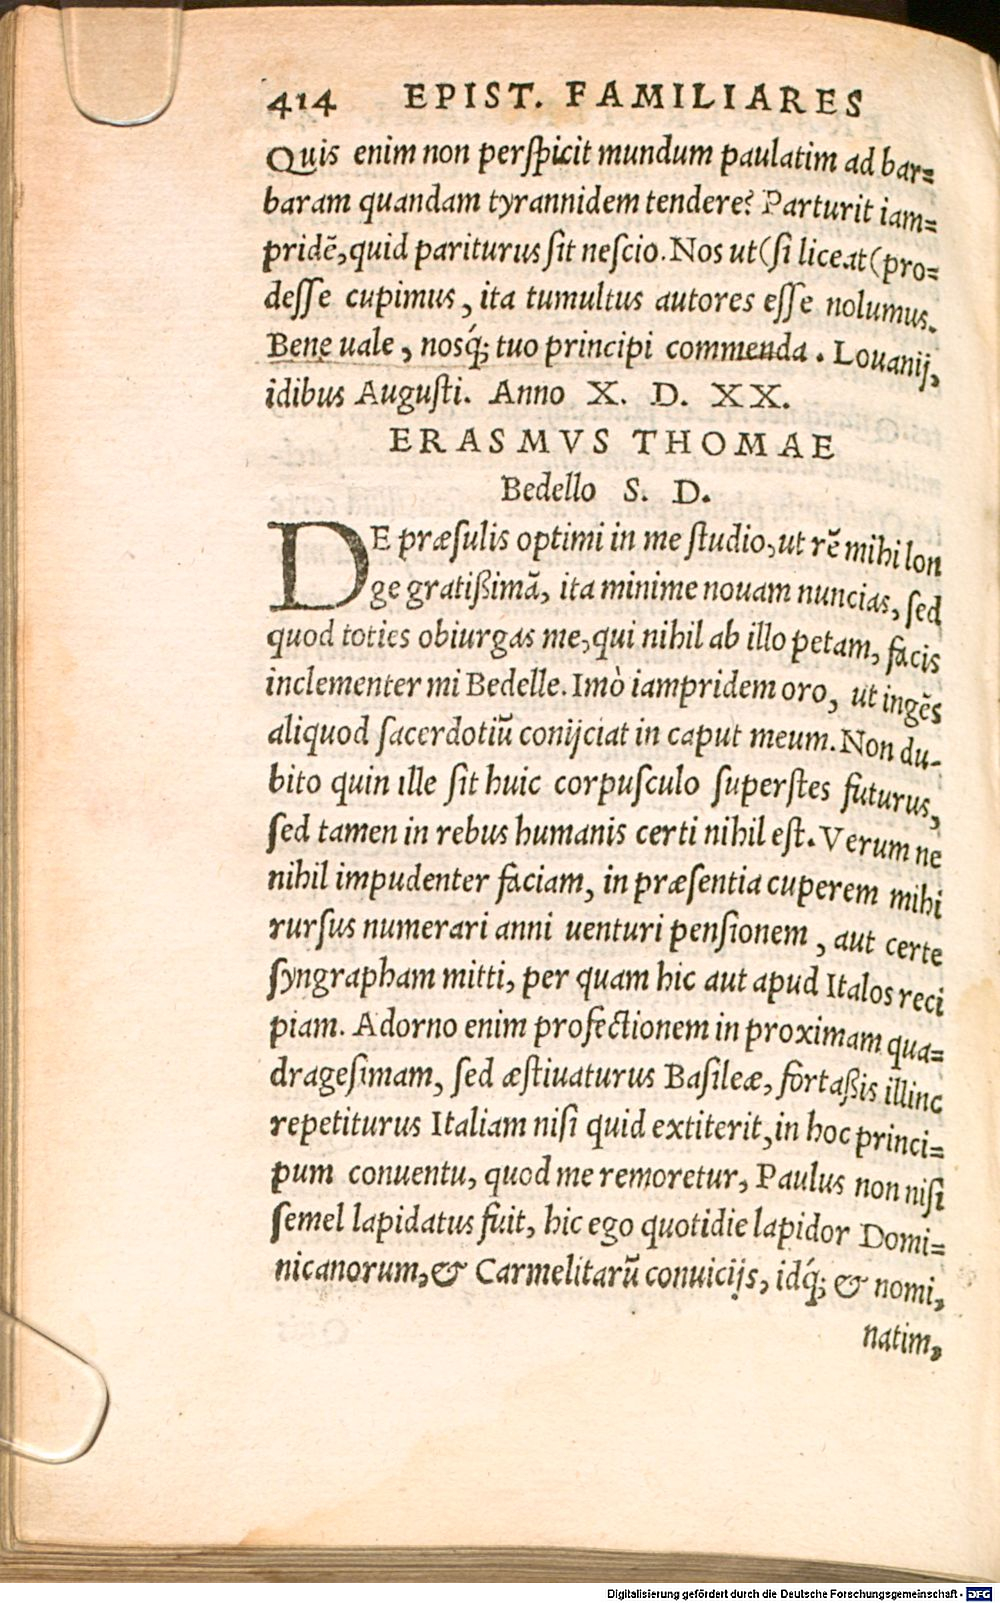 414 EPIST. FAMILIARES
Quis enim non perſpicit mundum paulatim ad bar=
baram quandam tyrannidem tendere? Parturit iam=
pridẽ, quid pariturus ſit neſcio. Nos ut (ſi liceat (pro=
deſſe cupimus, ita tumultus autores eſſe nolumus.
Bene uale, nosq́; tuo principi commenda. Louanij,
idibus Auguſti. Anno X. D. XX.
ERASMVS THOMAE
Bedello S. D.
DE præſulis optimi in me ſtudio, ut rẽ mihi lon
ge gratißimã, ita minime nouam nuncias, ſed
quod toties obiurgas me, qui nihil ab illo petam, facis
inclementer mi Bedelle. Imò iampridem oro, ut ingẽs
aliquod ſacerdotiũ conijciat in caput meum. Non du-
bito quin ille ſit huic corpuſculo ſuperſtes futurus,
ſed tamen in rebus humanis certi nihil eſt. Verum ne
nihil impudenter faciam, in præſentia cuperem mihi
rurſus numerari anni uenturi penſionem, aut certe
ſyngrapham mitti, per quam hic aut apud Italos reci
piam. Adorno enim profectionem in proximam qua=
drageſimam, ſed æſtiuaturus Baſileæ, fortaßis illinc
repetiturus Italiam niſi quid extiterit, in hoc princi=
pum conuentu, quod me remoretur, Paulus non niſi
ſemel lapidatus fuit, hic ego quotidie lapidor Domi=
nicanorum, & Carmelitarũ conuicijs, idq́; & nomi,
natim,
Digitalisierung gefördert durch die Deutsche Forschungsgemeinschaft - DFG